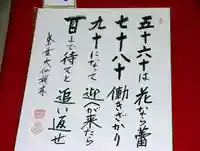 五十六十は花なら蕾
七十八十働きざかり
九十になって迎へが来たら
百まで待てと追い返せ